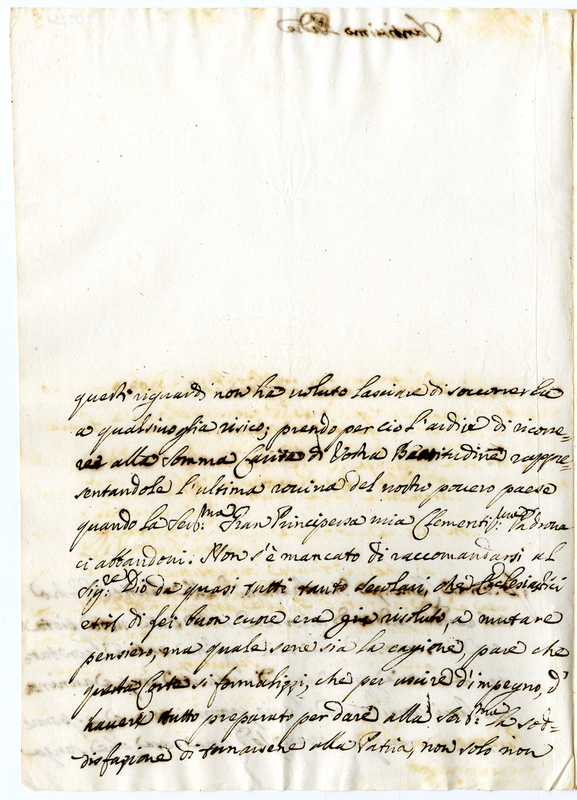 questi riguardi non ha voluto lasciare di soccorrerla
a qualsivoglia risico; prendo per ciò l'ardire di ricorre=
re alla somma Carità di Vostra Beatitudine rappre=
sentandole l'ultima rovina del nostro povero paese
quando la Ser:ma Gran Principessa mia Clementis:ma Padrona
ci abbandoni. Non s'è mancato di raccomandarsi al
Sig:re Dio da quasi tutti tanto secolari, che Ecclesiastici
et il di lei buon cuore era già risoluto, a mutare
pensiero, ma quale sene sia la cagione, pare che
questa Corte si formalizzi, che per uscire d'impegno, d'
havere tutto preparato per dare alla Ser:ma la sod=
disfazione di tornarsene alla Patria, non solo non